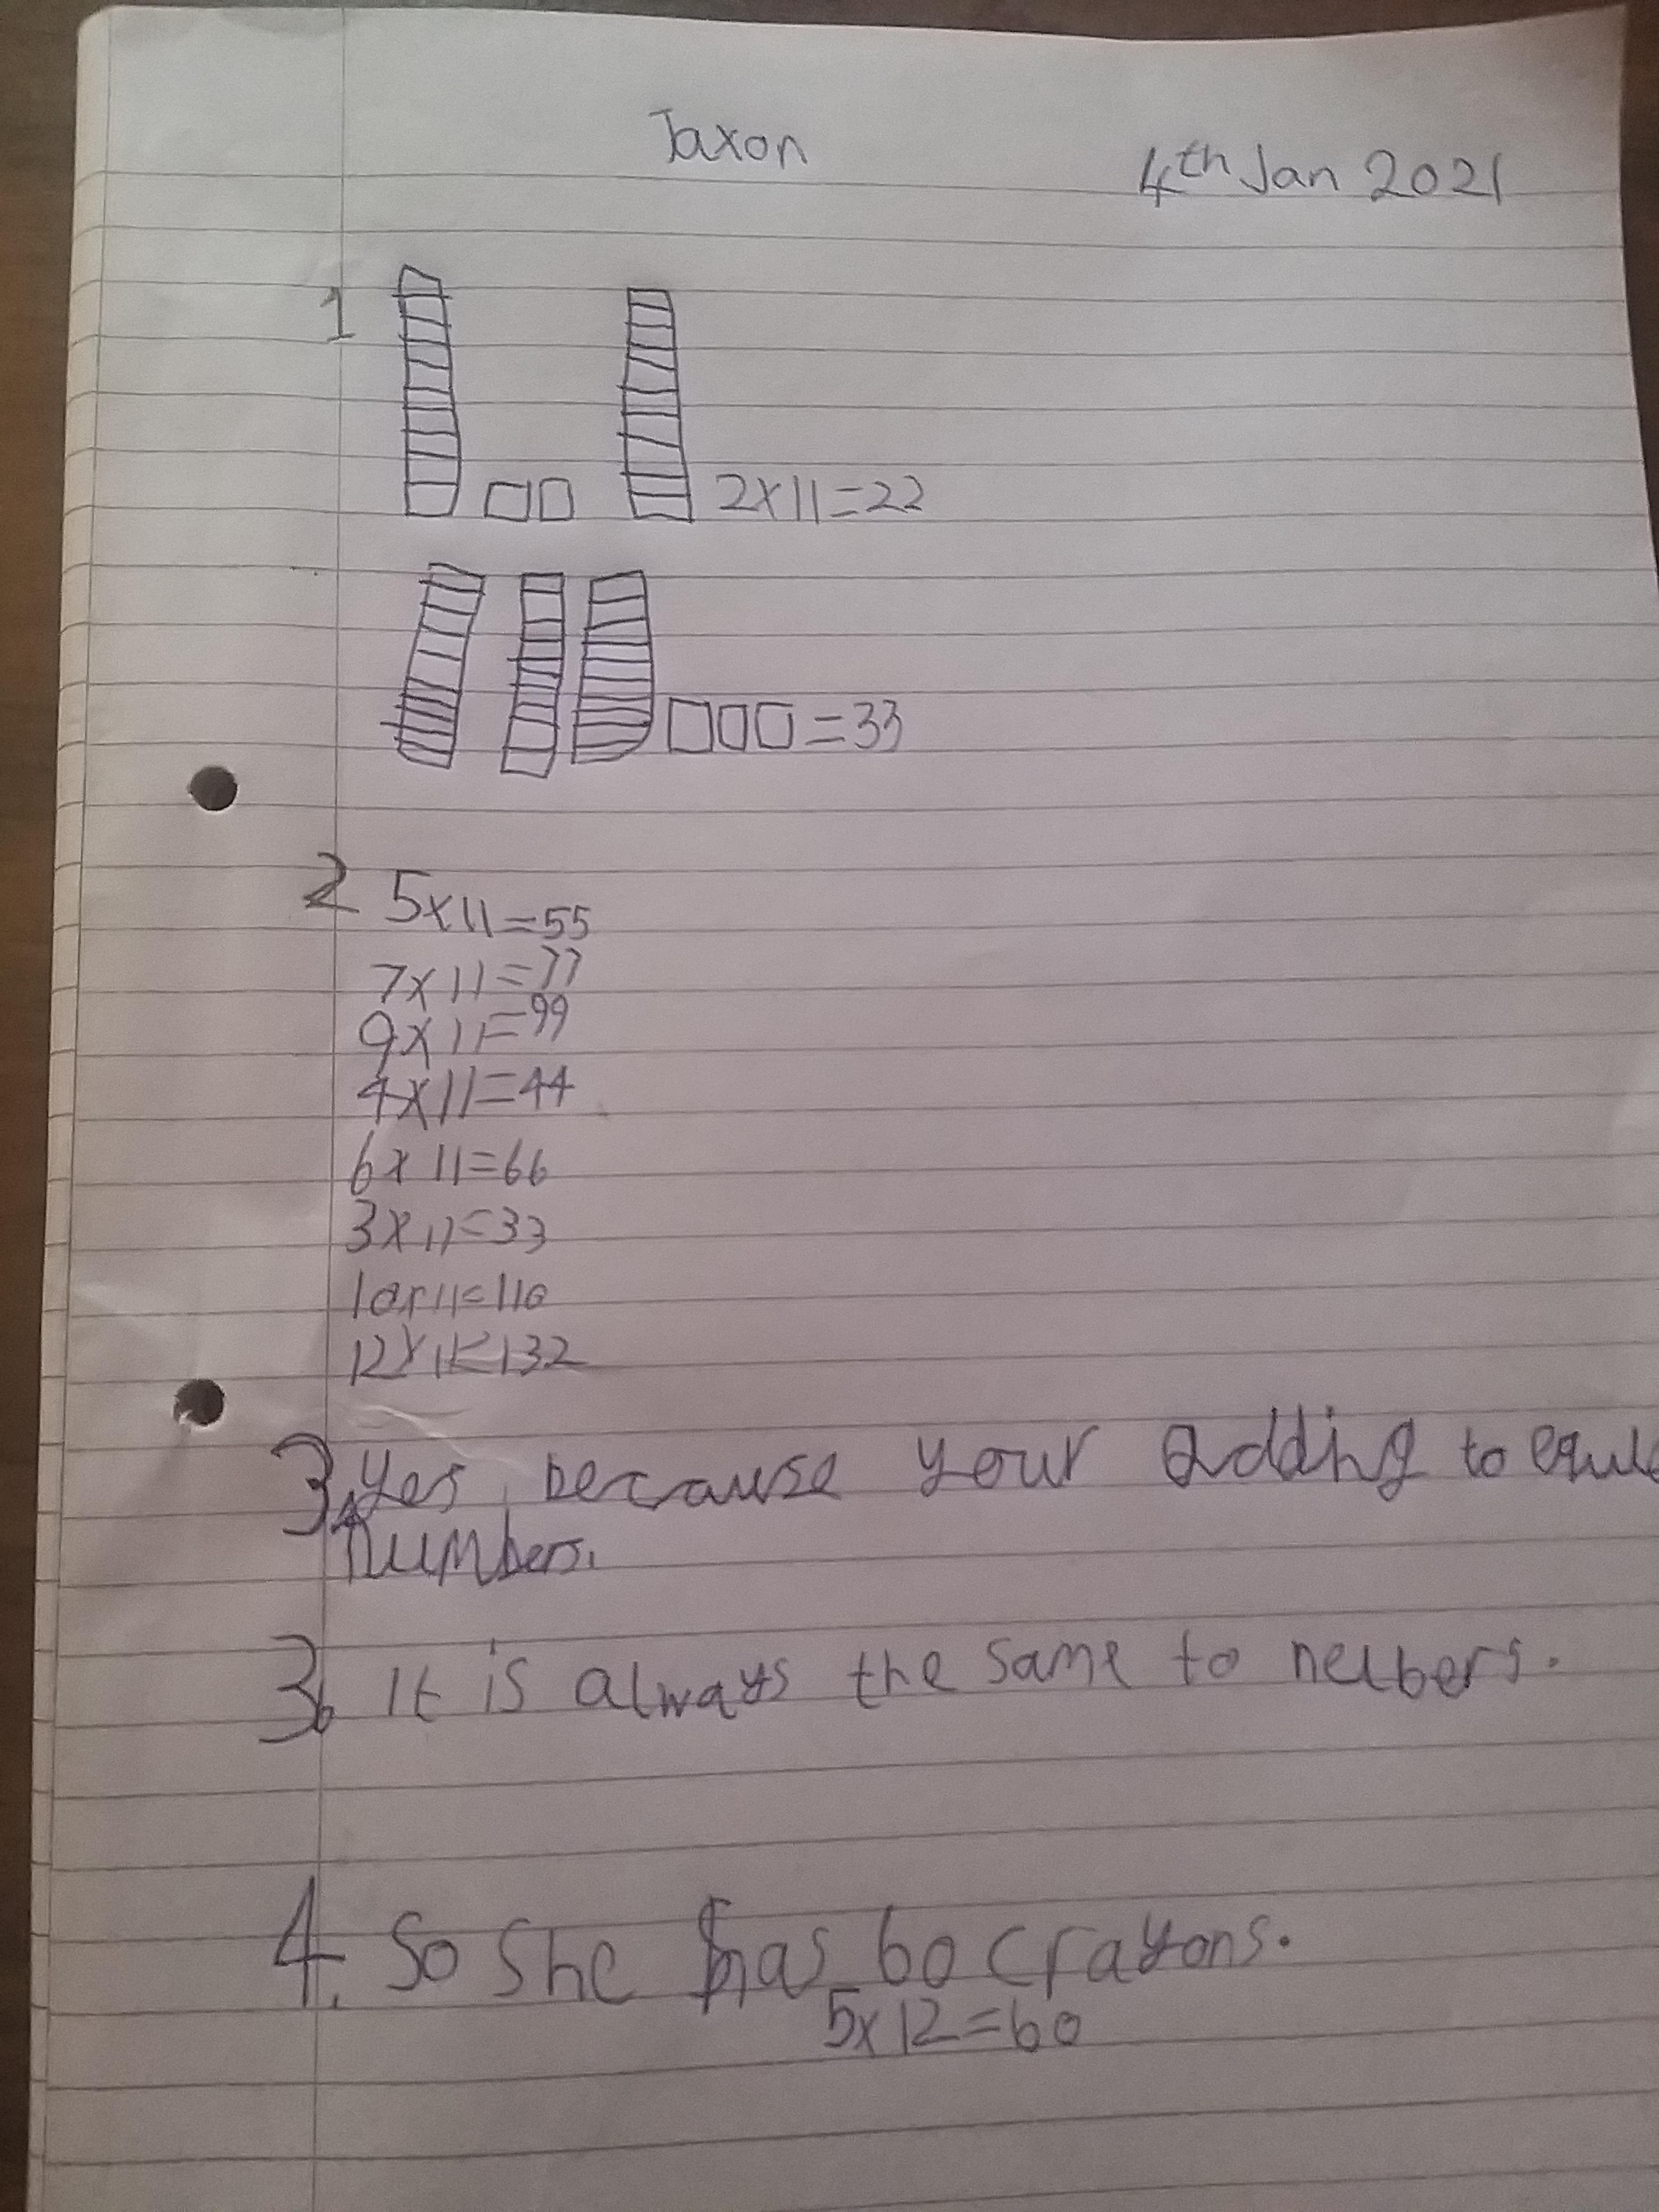 Jaxon
4th Jan 2021
1
2x11=22
=33
2 5x11=55
7x11=77
9x11=99
4x11=44
6x11=66
3x11=33
10x11=110
12x11=132
3a Yes because your adding to
numbers.
3b It is always the same to
4. So she has 60 crayons.
5x12=60